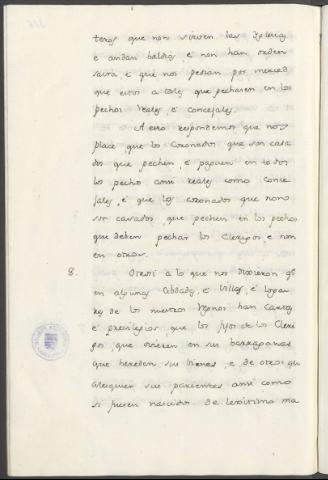 teros que non sirven las Iglesias
e andan baldios, e non han orden
sacra e que nos pedian por merced
que estos a tales que pecharen en los
pechos reales, e concejales.
A esto respondemos que nos
place que los coronados que son casa
dos que pechen, e paguen en todos
los pechos ansi reales como conce
jales, e que los coronados que non
son casados, que pechen en los pechos
que deben pechar los Clerigos e non
en otros.
8. Otrosi a lo que nos dixieron q̃
en algunas Cibdades, e Villas, e Logar
res de los nuestros Regnos han Cartas
e previlegios que los fijos de los Cleri
gos, que ovieren en sus barraganas
que hereden sus bienes, e de otros qua
lesquier sus parientes ansi como
si fuesen nascidos de lexitimo ma